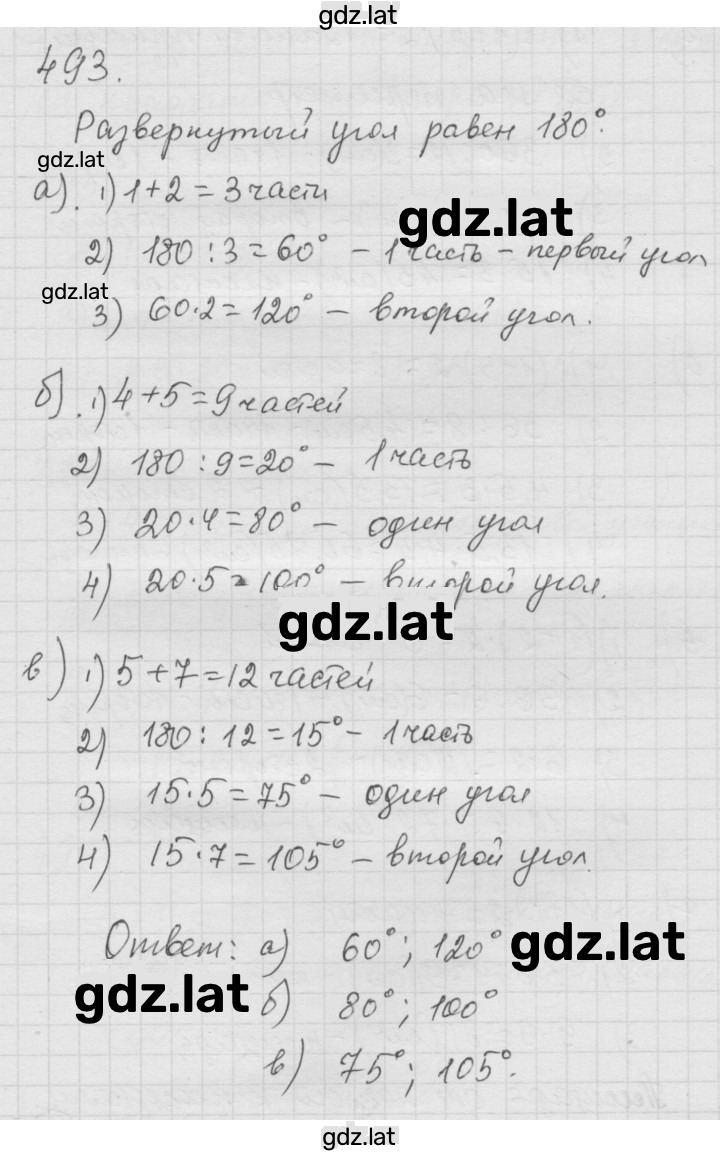 gdz.lat
493.
Развернутый угол равен 180°.
gdz.lat
а). 1) 1+2 = 3 части
gdz.lat
2) 180 : 3 = 60° – 1 часть – первый угол
gdz.lat
3) 60·2 = 120° – второй угол.
б). 1) 4+5 = 9 частей
2) 180 : 9 = 20° – 1 часть
3) 20·4 = 80° – один угол
4) 20·5 = 100° – второй угол.
gdz.lat
в) 1) 5+7 = 12 частей
2) 180 : 12 = 15° – 1 часть
3) 15·5 = 75° – один угол
4) 15·7 = 105° – второй угол.
Ответ: а) 60°; 120°
gdz.lat
gdz.lat
б) 80°; 100°
в) 75°; 105°.
gdz.lat